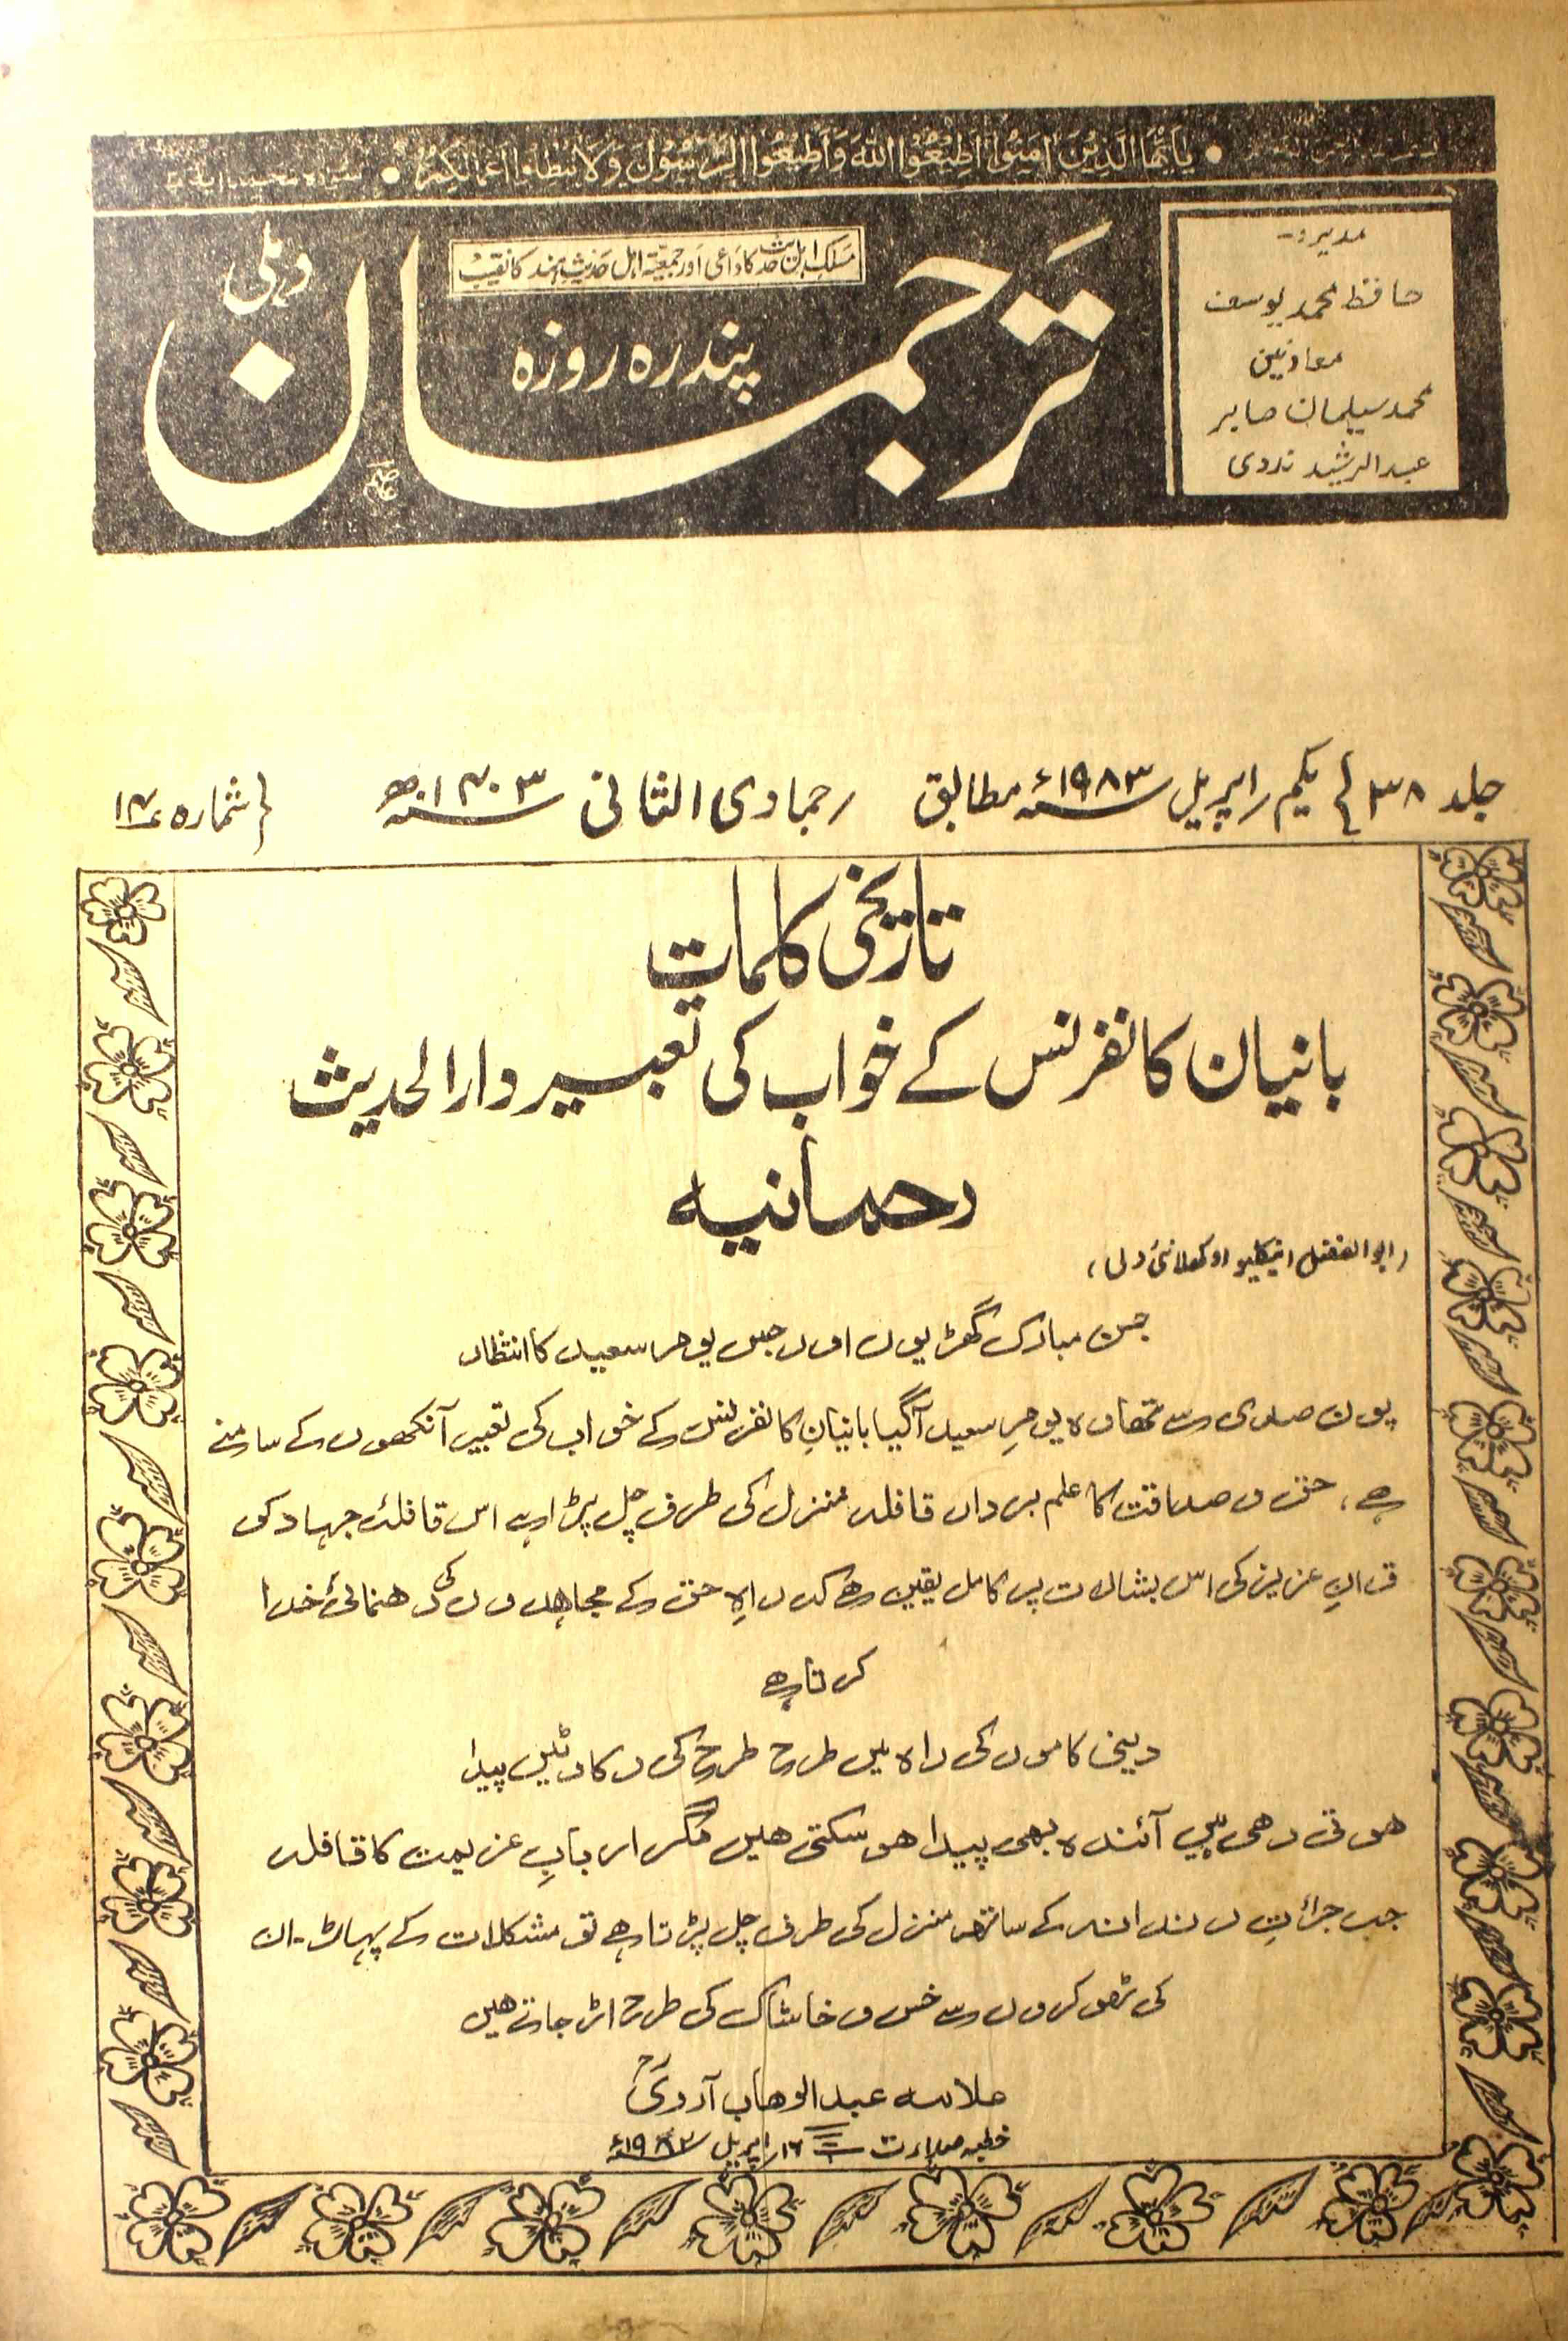 یاَیُّھَا الَّذِیْنَ اٰمَنُوْا اَطِیْعُوا اللّٰہَ وَاَطِیْعُوا الرَّسُوْلَ وَلَا تُبْطِلُوا اَعْمَالَکُمْ
مدیر:-
حافظ محمد یوسف
معاونین
محمد سیلمان صابر
عبدالرشید ندوی
مسلک اہل حدیث کا داعی اور جمعیۃ اہل حدیث ہند کا نقیب
ترجمان
پندرہ روزہ
دہلی
جلد ۳۸ یکم راپریل ۱۹۸۳ء مطابق رجمادی الثانی ۱۴۰۳ھ شمارہ
تاریخی کلمات
بانیان کانفرنس کے خواب کی تعبیر دارالحدیث
رحمانیہ
(ابوالفضل انیکلیو اوکھلا نئی دلی)
جن مبارک گھڑیوں اور جس یوم سعید کا انتظار
پون صدی سے تھا وہ یومِ سعید آگیا بانیانِ کانفرنس کے خواب کی تعبیر آنکھوں کے سامنے
ہے، حق و صداقت کا علم بردار قافلہ منزل کی طرف چل پڑا ہے اس قافلۂ جہاد کو
قرانِ عزیز کی اس بشارت پر کامل یقین ہے کہ راہِ حق کے مجاہدوں کی رھنمائی خدا
کرتا ہے
دینی کاموں کی راہ میں طرح طرح کی رکاوٹیں پیدا
ھوتی رھی ہیں آئندہ بھی پیدا ھو سکتی ھیں مگر اربابِ عزیمت کا قافلہ
جب جرائتِ رندانہ کے ساتھ منزل کی طرف چل پڑتا ہے تو مشکلات کے پہاڑ۔ ان
کی ٹھوکروں سے خس و خاشاک کی طرح اڑ جاتے ھیں
علامہ عبدالوھاب آروی رح
خطبہ صدارت ۱۶ راپریل ۱۹۸۳ء